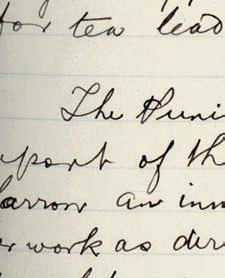 for tea lead
The Puni
eport of th
arrow an inm
r work as dire